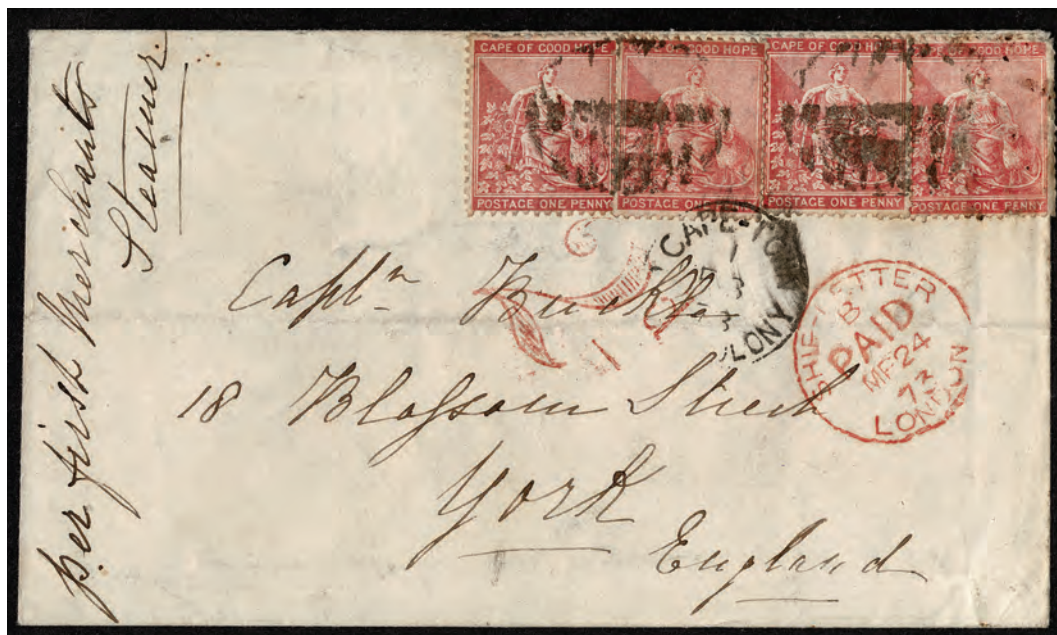 per first Merchants
Steamer.
CAPE OF GOOD HOPE
POSTAGE ONE PENNY
CAPE OF GOOD HOPE
POSTAGE ONE PENNY
CAPE OF GOOD HOPE
POSTAGE ONE PENNY
CAPE OF GOOD HOPE
POSTAGE ONE PENNY
SHIP LETTER
B
PAID
24
73
LONDON
Captn
18 Blossom Street
York
England